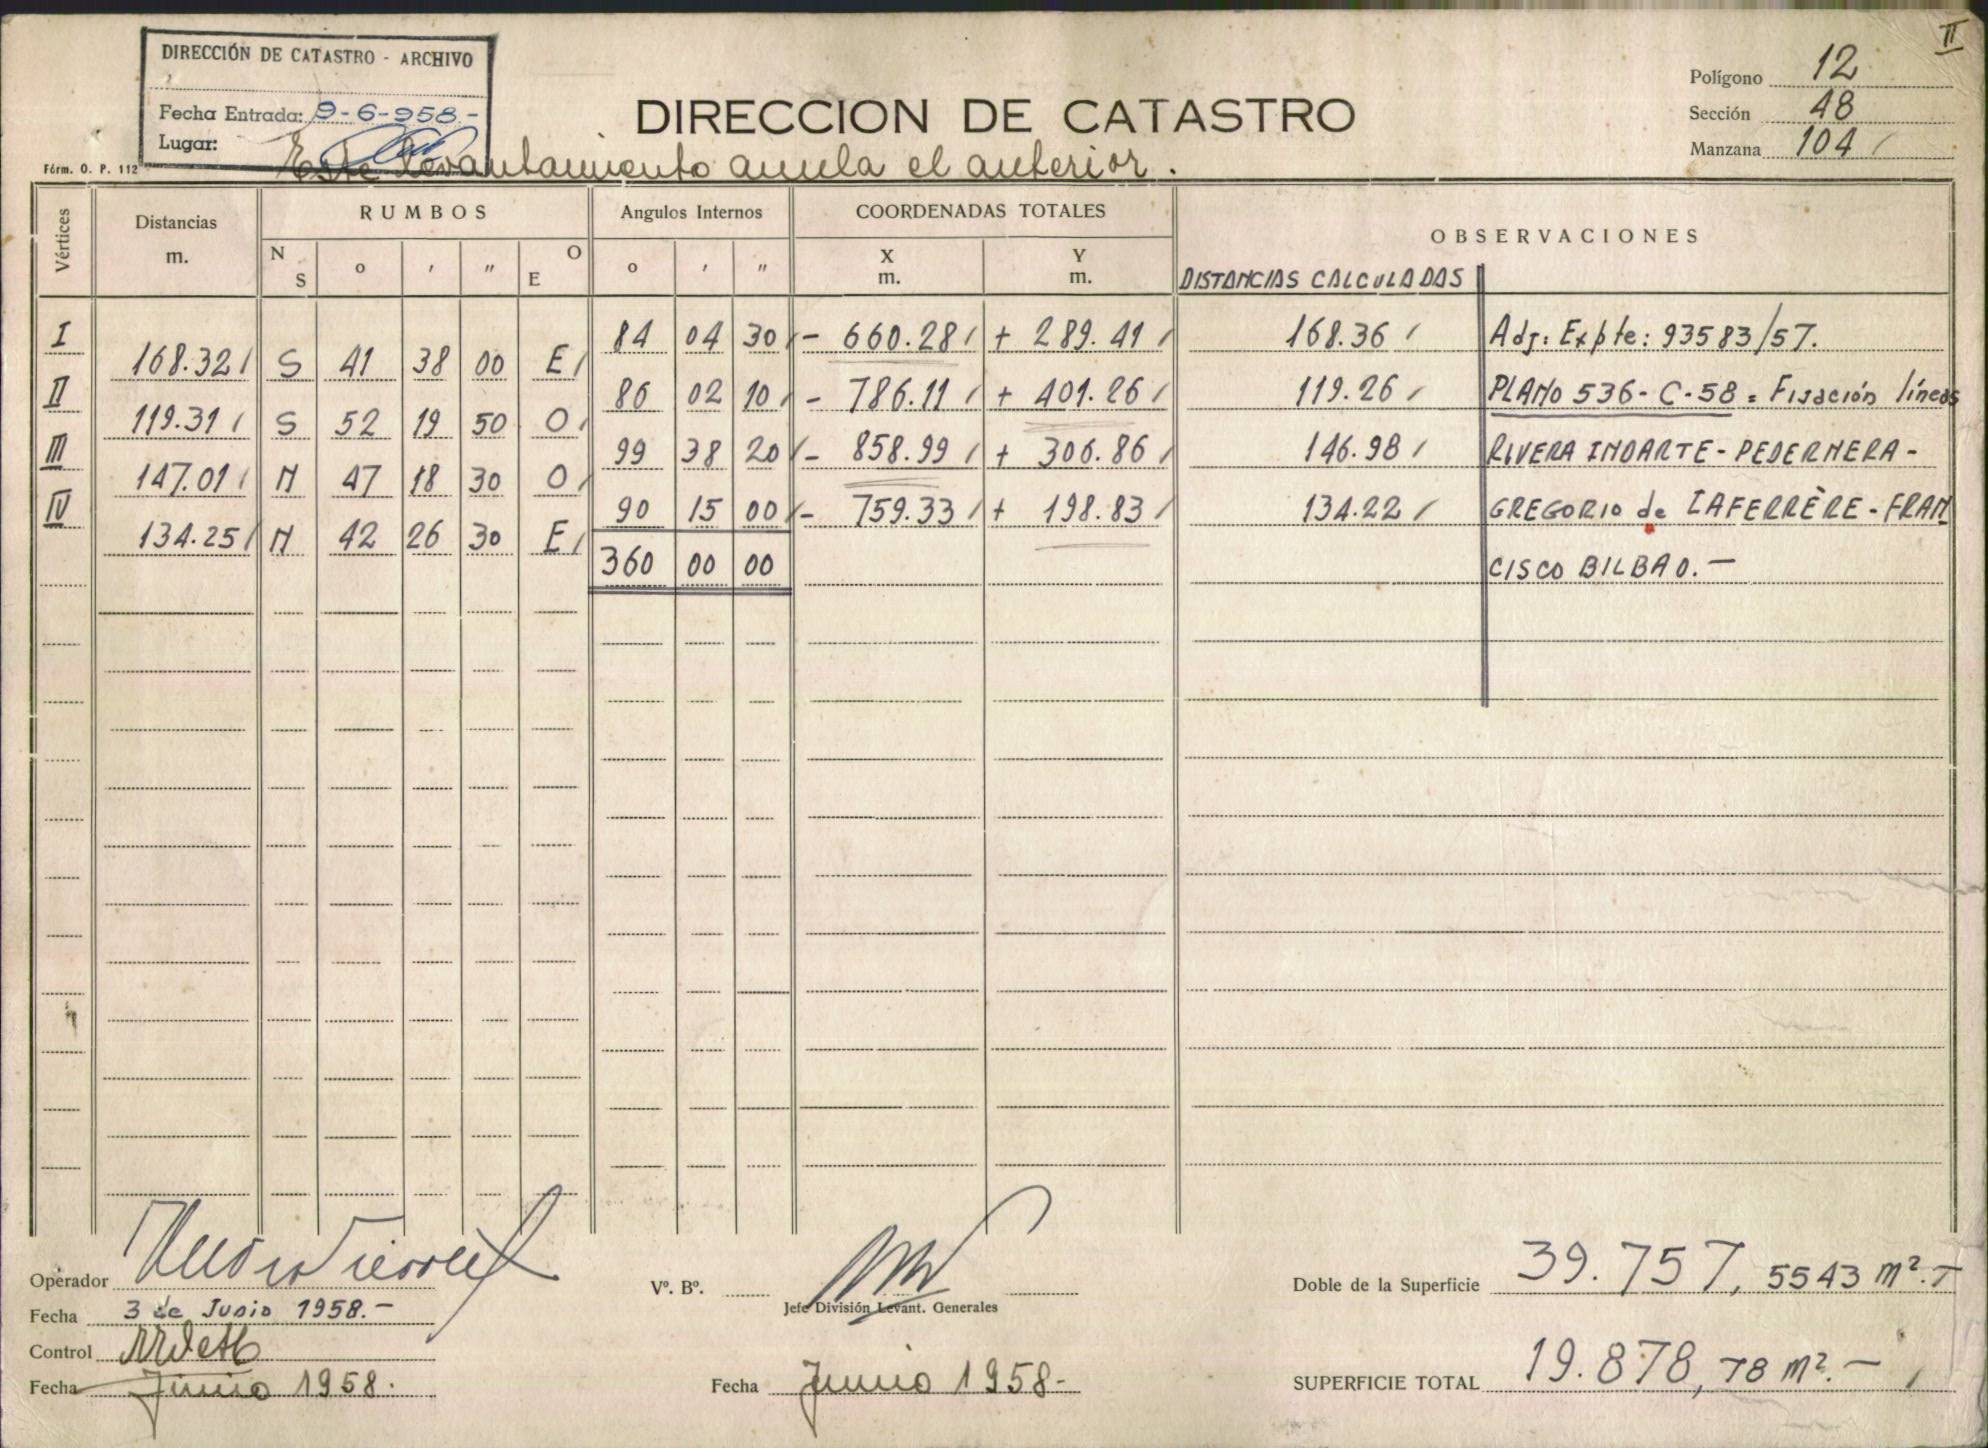 II
DIRECCIÓN DE CATASTRO - ARCHIVO
Fecha Entrada: 9-6-958.-
Lugar:
Fórm. O. P. 112
DIRECCION DE CATASTRO
Este levantamiento anula el anterior.
Polígono 12
Sección 48
Manzana 104
Vértices Distancias m. RUMBOS Angulos Internos COORDENADAS TOTALES OBSERVACIONES
N S o ' " O E o ' " X m. Y m. DISTANCIAS CALCULADAS
I 84 04 30 - 660.28 + 289.41 168.36 Adj: Expte: 93583/57.
168.32 S 41 38 00 E
II 86 02 10 - 786.11 + 401.26 119.26 PLANO 536-C-58 = Fijación líneas
119.31 S 52 19 50 O
III 99 38 20 - 858.99 + 306.86 146.98 RIVERA INDARTE - PEDERNERA -
147.01 N 47 18 30 O
IV 90 15 00 - 759.33 + 198.83 134.22 GREGORIO de LAFERRÈRE - FRAN
134.25 N 42 26 30 E
360 00 00 CISCO BILBAO.-
Operador
Fecha 3 de Junio 1958.-
Control
Fecha Junio 1958.
Vº. Bº.
Jefe División Levant. Generales
Fecha Junio 1958-
Doble de la Superficie 39.757, 5543 m².-
SUPERFICIE TOTAL 19.878, 78 m².-